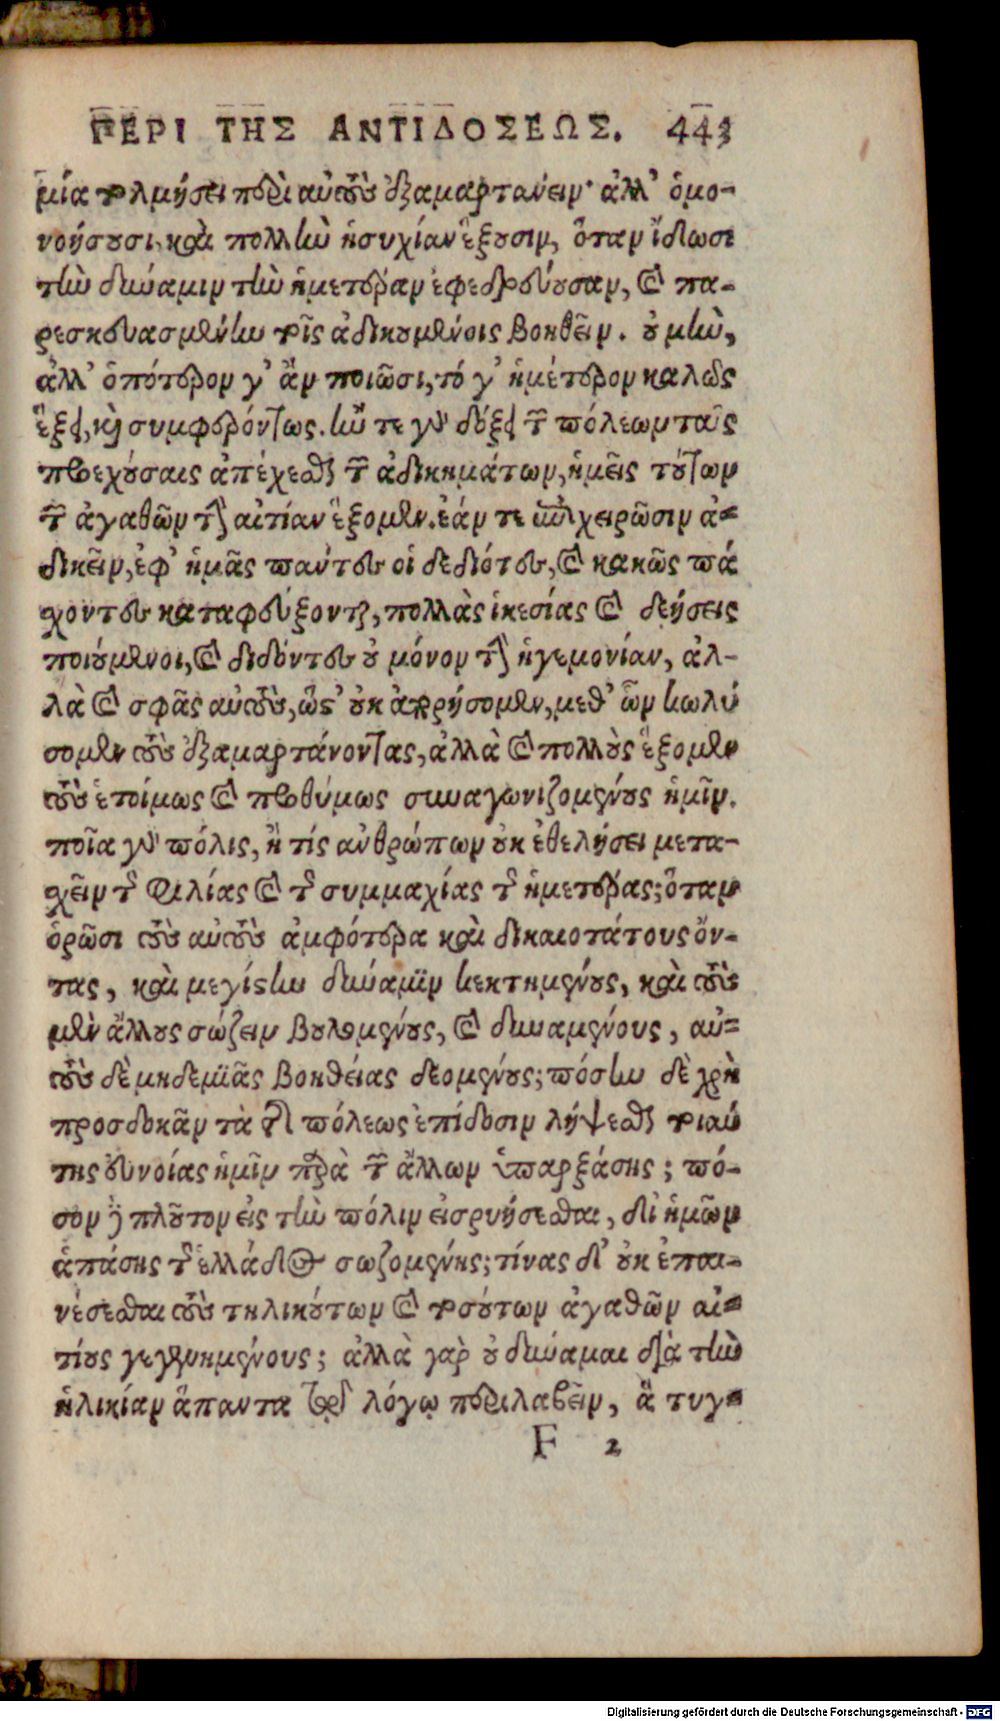 ΠΕΡΙ ΤΗΣ ΑΝΤΙΔΟΣΕΩΣ. 443
μία τολμήσει περὶ αὐτοὺς ἐξαμαρτάνειν· ἀλλ' ὁμο-
νοήσουσι, καὶ πολλὴν ἡσυχίαν ἕξουσιν, ὅταν ἴδωσι
τὴν δύναμιν τὴν ἡμετέραν ἐφεδρεύουσαν, καὶ πα-
ρεσκευασμένην τοῖς ἀδικουμένοις βοηθεῖν. οὐ μὴν,
ἀλλ' ὁπότερον γ' ἂν ποιῶσι, τό γ' ἡμέτερον καλῶς
ἕξει, καὶ συμφερόντως. ἤν τε γὰρ δόξει τῶν πόλεων ταῖς
προεχούσαις ἀπέχεσθαι τῶν ἀδικημάτων, ἡμεῖς τούτων
τῶν ἀγαθῶν τὴν αἰτίαν ἕξομεν. ἐάν τε ἐπιχειρῶσιν ἀ-
δικεῖν, ἐφ' ἡμᾶς πάντες οἱ δεδιότες, καὶ κακῶς πά
χοντες καταφεύξονται, πολλὰς ἱκεσίας καὶ δεήσεις
ποιούμενοι, καὶ διδόντες οὐ μόνον τὴν ἡγεμονίαν, ἀλ-
λὰ καὶ σφᾶς αὐτούς, ὥστ' οὐκ ἀπορήσομεν, μεθ' ὧν κωλύ
σομεν τοὺς ἐξαμαρτάνοντας, ἀλλὰ καὶ πολλοὺς ἕξομεν
τοὺς ἑτοίμως καὶ προθύμως συναγωνιζομένους ἡμῖν.
ποῖα γὰρ πόλις, ἢ τίς ἀνθρώπων οὐκ ἐθελήσει μετα-
χεῖν τῆς φιλίας καὶ τῆς συμμαχίας τῆς ἡμετέρας; ὅταν
ὁρῶσι τοὺς αὐτοὺς ἀμφότερα καὶ δικαιοτάτους ὄν-
τας, καὶ μεγίστην δύναμιν κεκτημένους, καὶ τοὺς
μὲν ἄλλους σώζειν βουλομένους, καὶ δυναμένους, αὐ-
τοὺς δὲ μηδεμιᾶς βοηθείας δεομένους; πόσην δὲ χρὴ
προσδοκᾶν τὰ τῆς πόλεως ἐπίδοσιν λήψεσθαι τοιαύ
της εὐνοίας ἡμῖν παρὰ τῶν ἄλλων ὑπαρξάσης; πό-
σον δὲ πλοῦτον εἰς τὴν πόλιν εἰσρυήσεσθαι, δι' ἡμῶν
ἁπάσης τῆς ἑλλάδος σωζομένης; τίνας δ' οὐκ ἐπαι-
νέσεσθαι τοὺς τηλικούτων καὶ τοσούτων ἀγαθῶν αἰ-
τίους γεγενημένους; ἀλλὰ γὰρ οὐ δύναμαι διὰ τὴν
ἡλικίαν ἅπαντα τῷ λόγῳ περιλαβεῖν, ἃ τυγ-
F 2
Digitalisierung gefördert durch die Deutsche Forschungsgemeinschaft - DFG